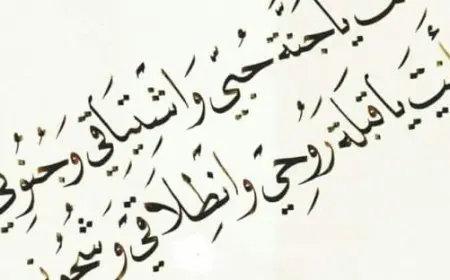 يا جنَّة حُبّي وَاشتِيَاقي وَجُنُوني
أنتِ يا قبلَة رُوحي وَانطِلَاقي